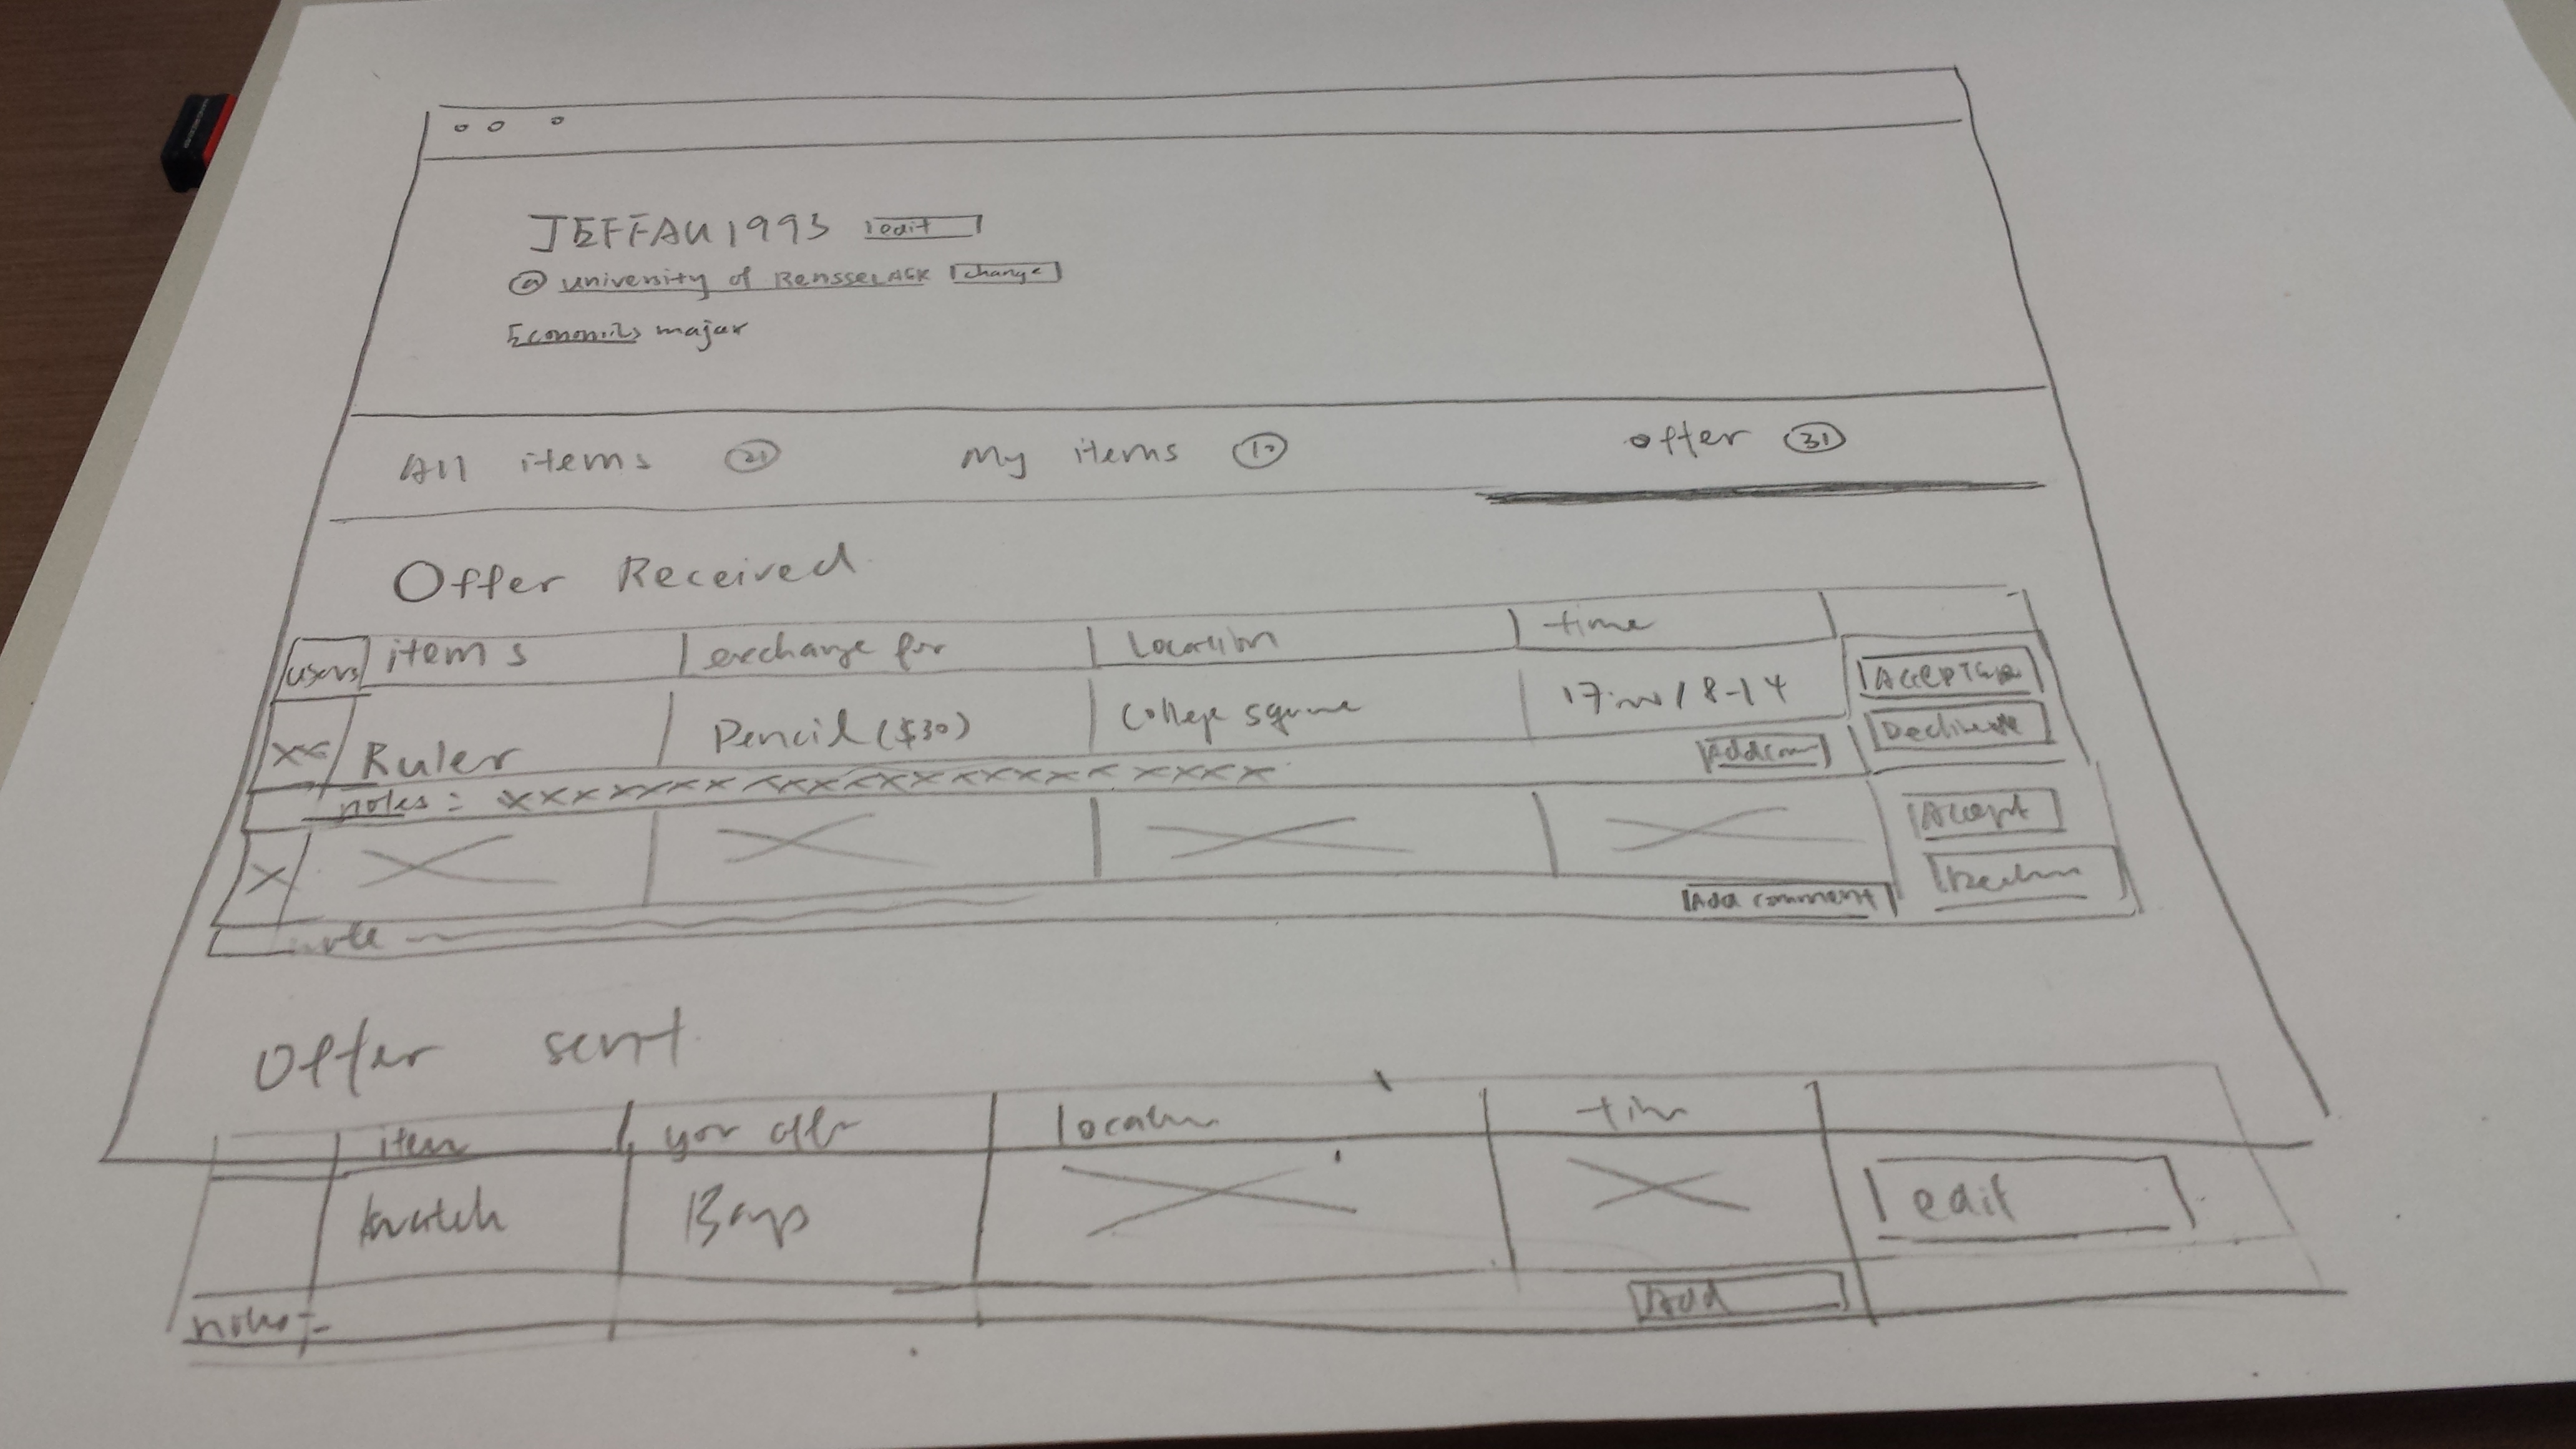 JEFFAU1993 edit
@ university of RENSSELAER change
Economics major
All items 21 My items 12 offer 31
Offer Received
users items exchange for Location time
xx Ruler Pencil ($30) College square Accept
Decline
notes: xxxxxxx xxxxxxxxxxxx xxxx Add com
x Accept
Decline
Add comment
note
Offer sent
item your offer location time
watch Bags edit
notes:- Add